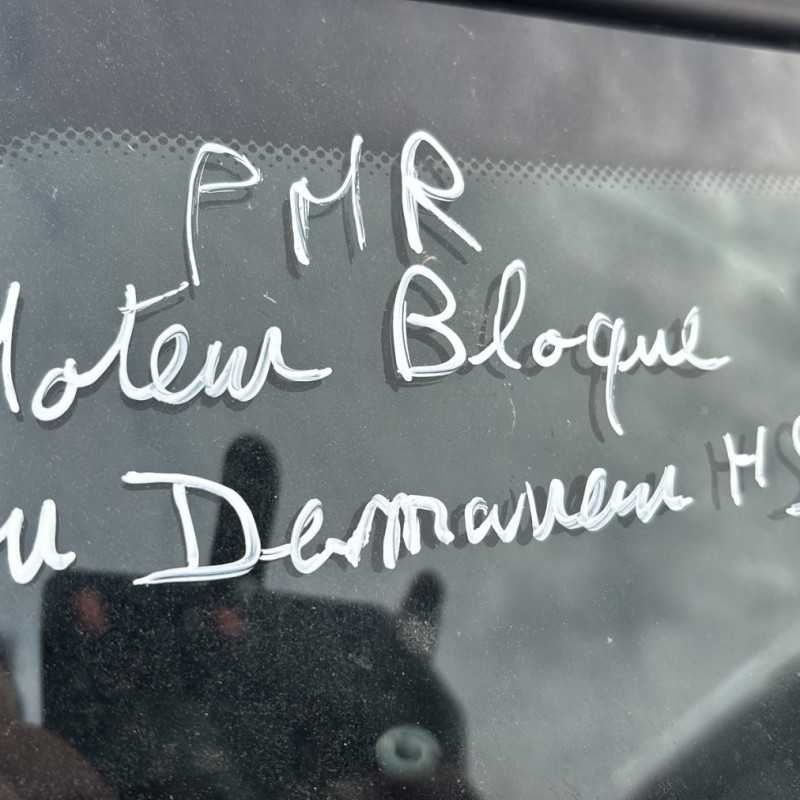 PMR
Moteur Bloque
ou Demarreur HS